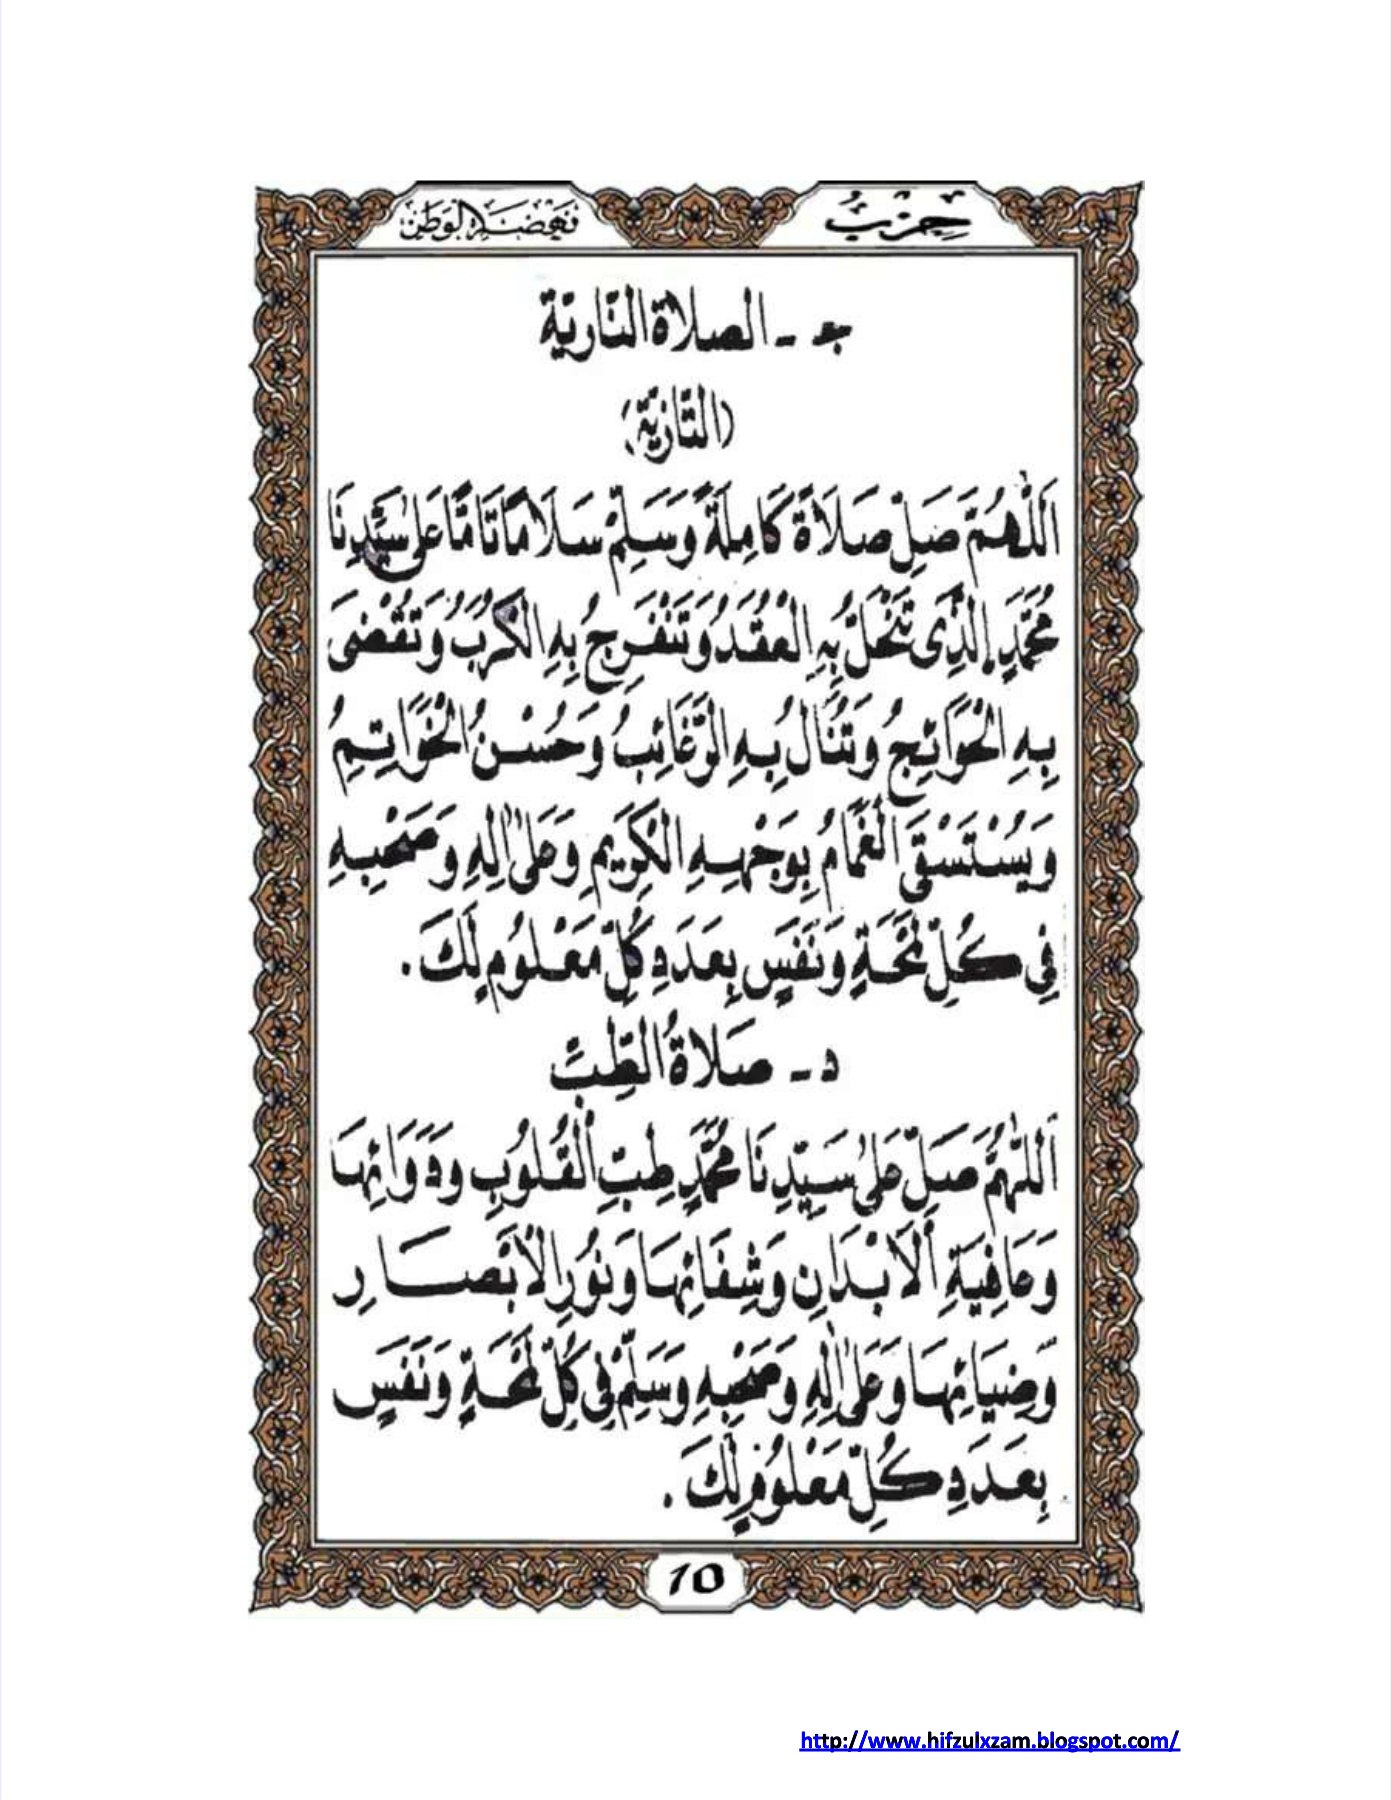 حِزْبُ نَهْضَةِ الْوَطَنِ
جـ - الصلاة النّاريّة
(التّازيّة)
اَللّٰهُمَّ صَلِّ صَلَاةً كَامِلَةً وَسَلِّمْ سَلَامًا تَامًّا عَلٰى سَيِّدِنَا
مُحَمَّدٍ الَّذِى تَنْحَلُّ بِهِ الْعُقَدُ وَتَنْفَرِجُ بِهِ الْكُرَبُ وَتُقْضٰى
بِهِ الْحَوَائِجُ وَتُنَالُ بِهِ الرَّغَائِبُ وَحُسْنُ الْخَوَاتِمِ
وَيُسْتَسْقَى الْغَمَامُ بِوَجْهِهِ الْكَرِيمِ وَعَلٰى اٰلِهِ وَصَحْبِهِ
فِي كُلِّ لَمْحَةٍ وَنَفَسٍ بِعَدَدِ كُلِّ مَعْلُومٍ لَكَ .
د - صَلَاةُ الطِّبِّ
اَللّٰهُمَّ صَلِّ عَلٰى سَيِّدِنَا مُحَمَّدٍ طِبِّ الْقُلُوبِ وَدَوَائِهَا
وَعَافِيَةِ الْاَبْدَانِ وَشِفَائِهَا وَنُورِ الْاَبْصَارِ
وَضِيَائِهَا وَعَلٰى اٰلِهِ وَصَحْبِهِ وَسَلِّمْ فِي كُلِّ لَمْحَةٍ وَنَفَسٍ
بِعَدَدِ كُلِّ مَعْلُومٍ لَكَ .
10
http://www.hifzulxzam.blogspot.com/